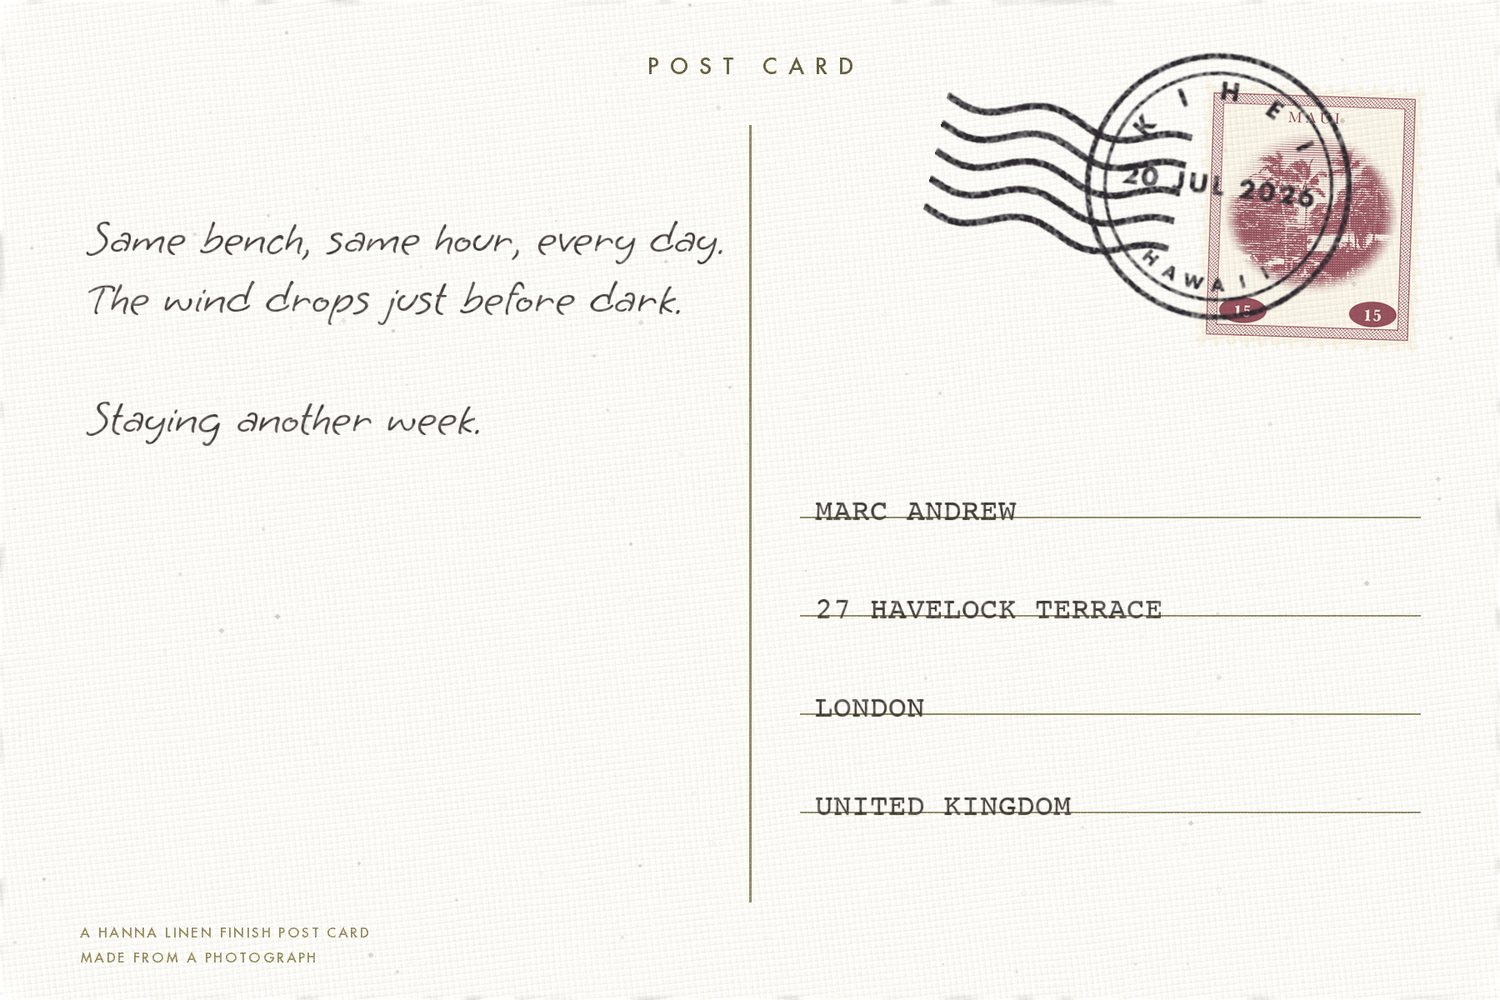 POST CARD
KIHEI
20 JUL 2026
HAWAII
MAUI
15 15
Same bench, same hour, every day.
The wind drops just before dark.
Staying another week.
MARC ANDREW
27 HAVELOCK TERRACE
LONDON
UNITED KINGDOM
A HANNA LINEN FINISH POST CARD
MADE FROM A PHOTOGRAPH